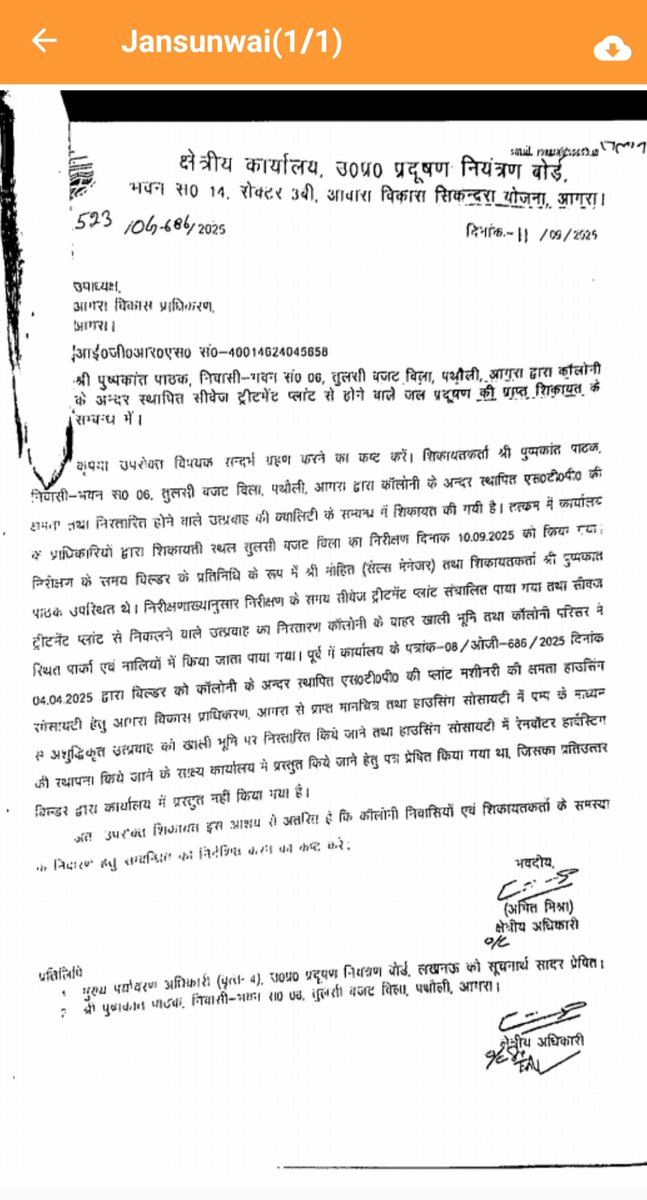 Jansunwai(1/1)
क्षेत्रीय कार्यालय, उ0प्र0 प्रदूषण नियंत्रण बोर्ड,
भवन स0 14, सेक्टर 3बी, आवास विकास सिकन्दरा योजना, आगरा।
523 /OG-686/2025
दिनांक:-11 /09/2025
उपाध्यक्ष,
आगरा विकास प्राधिकरण,
आगरा।
आई0जी0आर0एस0 सं0-40014624045658
श्री पुष्पकांत पाठक, निवासी-भवन सं0 06, तुलसी बजट विला, पथौली, आगरा द्वारा कॉलोनी
के अन्दर स्थापित सीवेज ट्रीटमेंट प्लांट से होने वाले जल प्रदूषण की प्राप्त शिकायत के
सम्बन्ध में।
कृपया उपरोक्त विषयक सन्दर्भ ग्रहण करने का कष्ट करें। शिकायतकर्ता श्री पुष्पकांत पाठक,
निवासी-भवन स0 06, तुलसी बजट विला, पथौली, आगरा द्वारा कॉलोनी के अन्दर स्थापित एस0टी0पी0 की
क्षमता तथा निस्तारित होने वाले उत्प्रवाह की क्वालिटी के सम्बन्ध में शिकायत की गयी है। तत्क्रम में कार्यालय
के प्राधिकारियों द्वारा शिकायती स्थल तुलसी बजट विला का निरीक्षण दिनांक 10.09.2025 को किया गया।
निरीक्षण के समय बिल्डर के प्रतिनिधि के रूप में श्री मोहित (सेल्स मेनेजर) तथा शिकायतकर्ता श्री पुष्पकांत
पाठक उपस्थित थे। निरीक्षणाख्यानुसार निरीक्षण के समय सीवेज ट्रीटमेंट प्लांट संचालित पाया गया तथा सीवेज
ट्रीटमेंट प्लांट से निकलने वाले उत्प्रवाह का निस्तारण कॉलोनी के बाहर खाली भूमि तथा कॉलोनी परिसर में
स्थित पार्को एवं नालियों में किया जाता पाया गया। पूर्व में कार्यालय के पत्रांक-08/ओजी-686/2025 दिनांक
04.04.2025 द्वारा बिल्डर को कॉलोनी के अन्दर स्थापित एस0टी0पी0 की प्लांट मशीनरी की क्षमता हाउसिंग
सोसायटी हेतु आगरा विकास प्राधिकरण, आगरा से प्राप्त मानचित्र तथा हाउसिंग सोसायटी में पम्प के माध्यम
से अशुद्धिकृत उत्प्रवाह को खाली भूमि पर निस्तारित किये जाने तथा हाउसिंग सोसायटी में रेनवॉटर हार्वेस्टिंग
की स्थापना किये जाने के साक्ष्य कार्यालय में प्रस्तुत किये जाने हेतु पत्र प्रेषित किया गया था, जिसका प्रतिउत्तर
बिल्डर द्वारा कार्यालय में प्रस्तुत नहीं किया गया है।
अतः उपरोक्त शिकायत इस आशय से अंतरित है कि कॉलोनी निवासियों एवं शिकायतकर्ता के समस्या
के निवारण हेतु सम्बन्धित को निर्देशित करने का कष्ट करें।
भवदीय,
(अमित मिश्रा)
क्षेत्रीय अधिकारी
प्रतिलिपि
1. मुख्य पर्यावरण अधिकारी (वृत्त-4), उ0प्र0 प्रदूषण नियंत्रण बोर्ड, लखनऊ को सूचनार्थ सादर प्रेषित।
2. श्री पुष्पकांत पाठक, निवासी-भवन स0 06, तुलसी बजट विला, पथौली, आगरा।
क्षेत्रीय अधिकारी